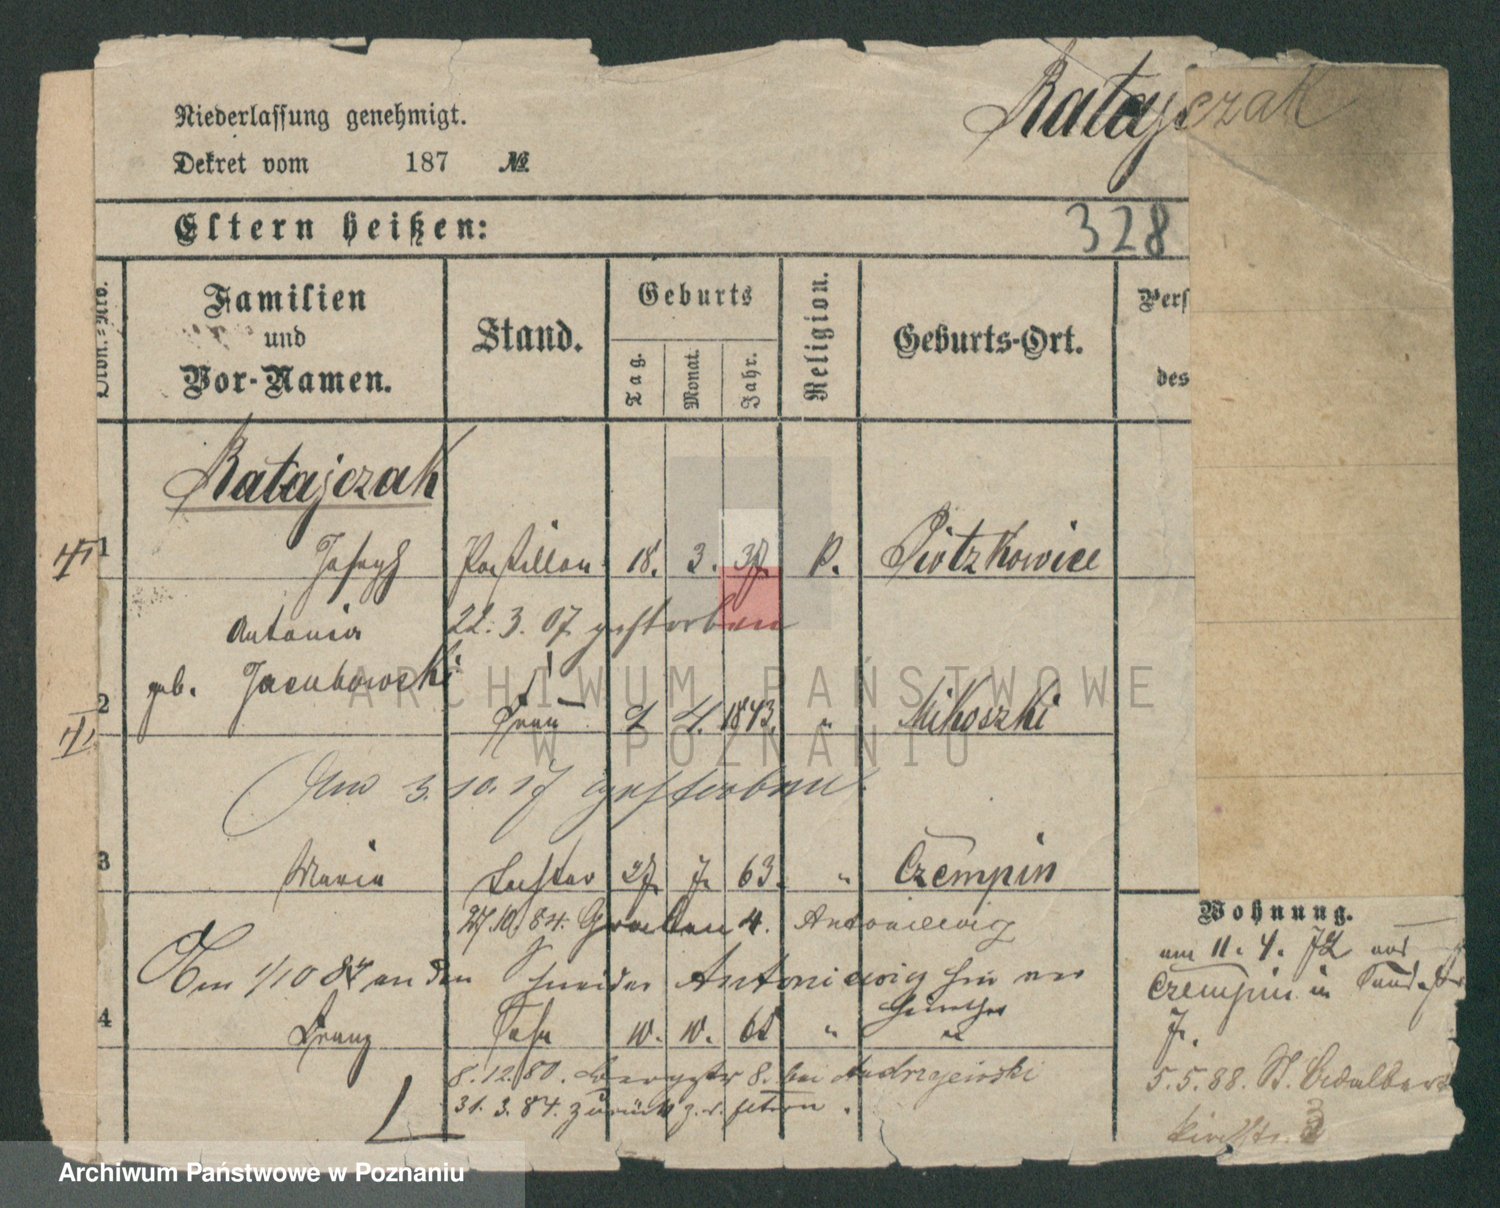 Ratajczak
Niederlassung genehmigt.
Dekret vom 187 №
Eltern heißen:
328
Ordn.-Nro.
Familien und Vor-Namen.
Stand.
Geburts
Tag.
Monat.
Jahr.
Religion.
Geburts-Ort.
Pers
des
Ratajczak
1 Joseph Postillon 18. 3. 37. K. Piotrkowice
Antonia 22. 3. 07 gestorben
geb. Jacubowski
2 Frau 4. 1843. " Mikoszki
Am 3. 10. 17 gestorben.
3 Maria Tochter 27. 7. 63. " Czempin
27/10. 84. Graben 4. Antoniewicz
Am 1/10 84 an den Schneider Antoniewicz hier verh.
4 Franz Sohn 10. 10. 65 " "
8. 12. 80. Bergstr 8. bei Andrzejewski
31. 3. 84. zurück z. d. Eltern.
Wohnung.
am 11. 4. 72 aus
Czempin in
7.
5. 5. 88. St. Adalbert
kirchstr. 3
ARCHIWUM PAŃSTWOWE
W POZNANIU
Archiwum Państwowe w Poznaniu